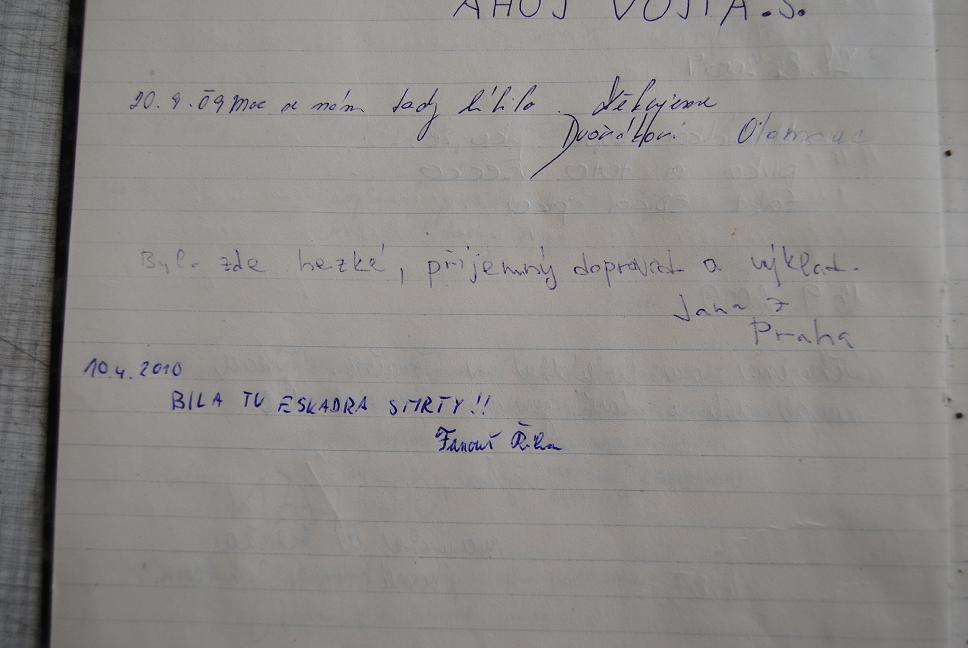 AHOJ VOJTA.S.
20.9.09 Moc se nám tady líbilo. Děkujeme
Dvořákovi Olomouc
Bylo zde hezké, příjemný doprovod a výklad.
Jana z
Praha
10.4.2010
BILA TU ESKADRA SMRTY!!
Fanouš Říha